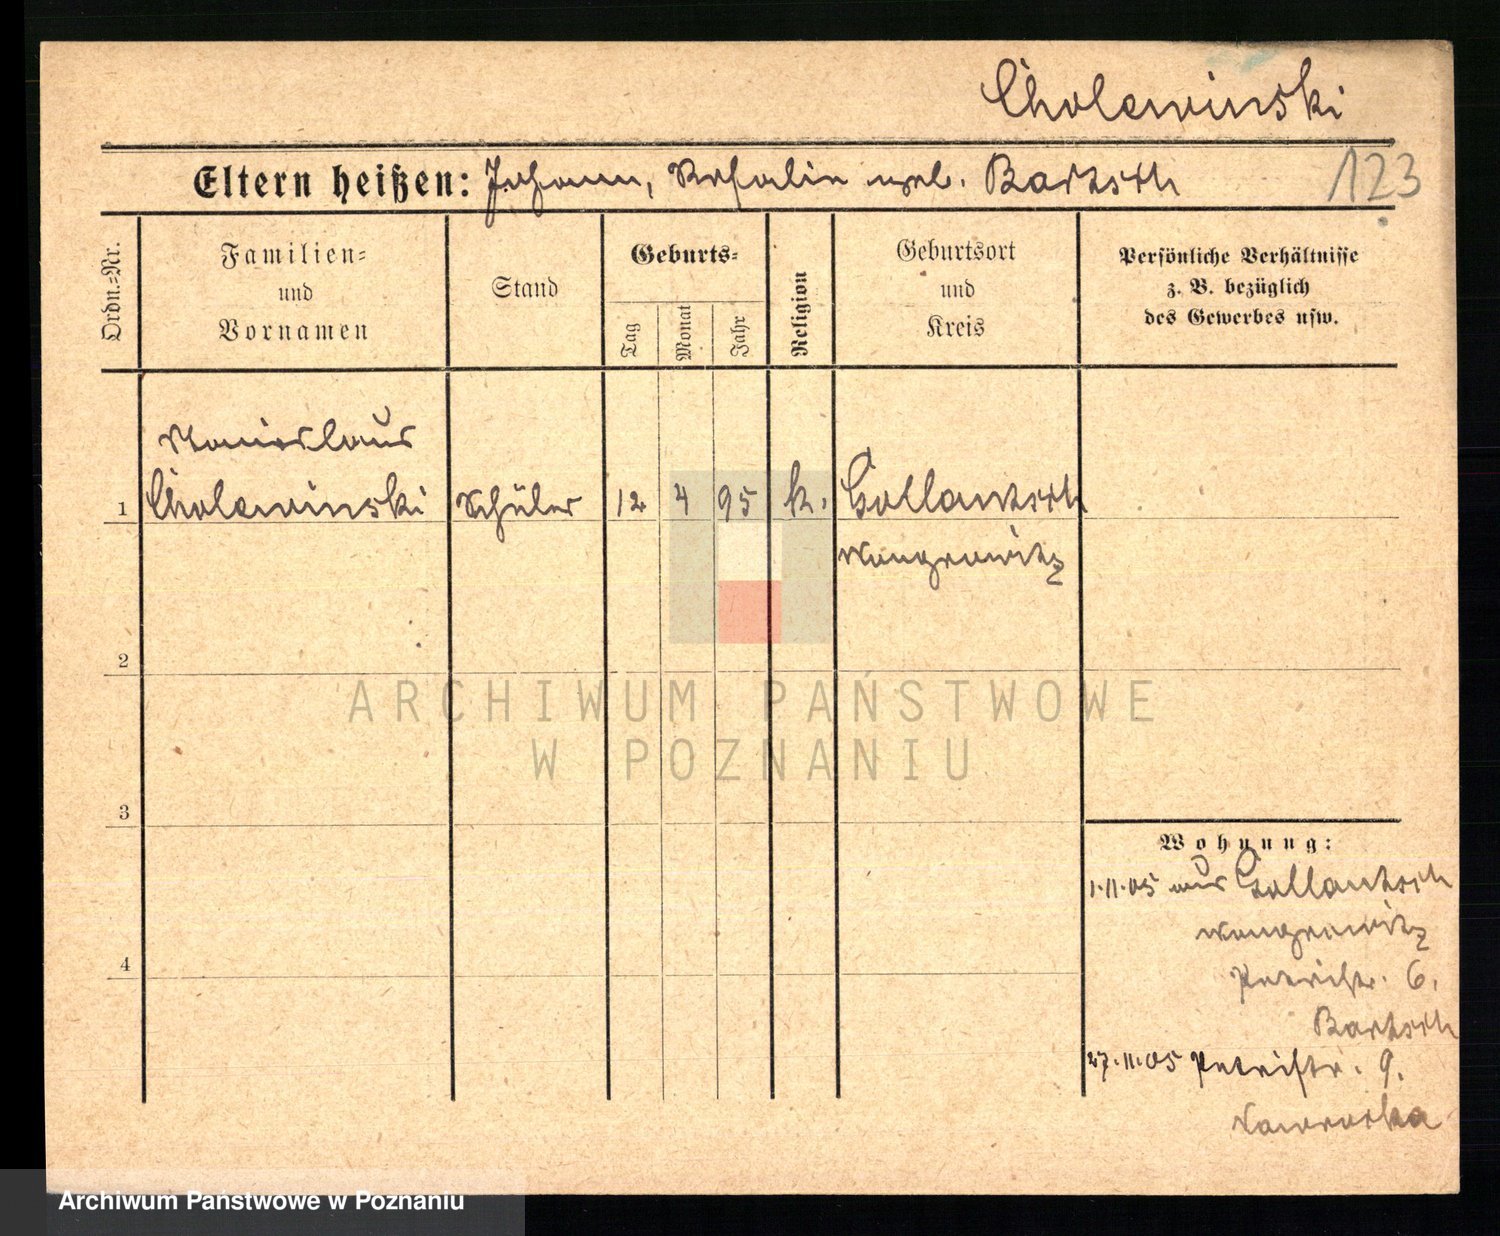 Cholewinski
Eltern heißen: Johann, Rosalie geb. Bartsch
123
Ordn.=Nr.
Familien=
und
Vornamen
Stand
Geburts=
Tag
Monat
Jahr
Religion
Geburtsort
und
Kreis
Persönliche Verhältnisse
z. B. bezüglich
des Gewerbes usw.
1 Cholewinski Schüler 12 4 95 k. Gollantsch
Wongrowitz
2
3
4
Wohnung:
1.11.05 aus Gollantsch
Wongrowitz
Petristr. 6.
Bartsch
27.11.05 Petristr. 9.
ARCHIWUM PAŃSTWOWE
W POZNANIU
Archiwum Państwowe w Poznaniu